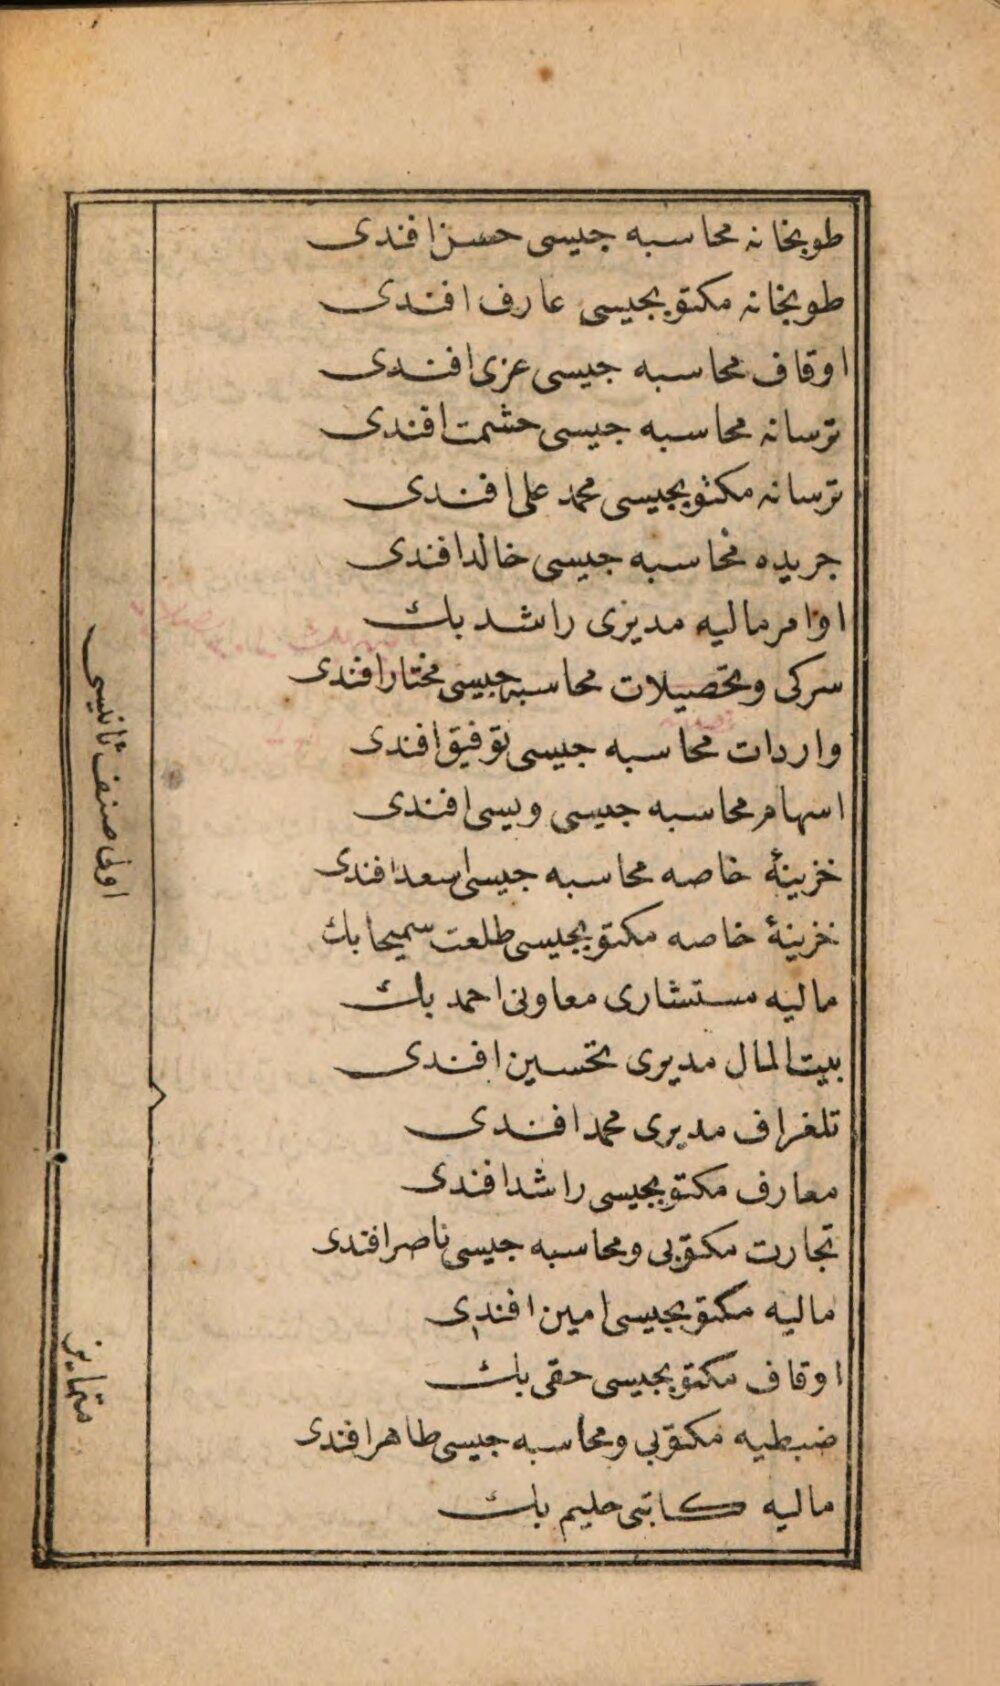 طوپخانه محاسبه جیسی حسن افندی
طوپخانه مکتوبجیسی عارف افندی
اوقاف محاسبه جیسی عزی افندی
ترسانه محاسبه جیسی حشمت افندی
ترسانه مکتوبجیسی محمد علی افندی
جریده محاسبه جیسی خالد افندی
اوامر مالیه مدیری راشد بك
سرکی وتحصیلات محاسبه جیسی مختار افندی
واردات محاسبه جیسی توفیق افندی
اسهام محاسبه جیسی ویسی افندی
خزینهٔ خاصه محاسبه جیسی اسعد افندی
خزینهٔ خاصه مکتوبجیسی طلعت سمیحا بك
مالیه مستشاری معاونی احمد بك
بیت المال مدیری تحسین افندی
تلغراف مدیری محمد افندی
معارف مکتوبجیسی راشد افندی
تجارت مکتوبی ومحاسبه جیسی ناصر افندی
مالیه مکتوبجیسی امین افندی
اوقاف مکتوبجیسی حقی بك
ضبطیه مکتوبی ومحاسبه جیسی طاهر افندی
مالیه کاتبی حلیم بك
اولی صنف ثانیسی
متمایز